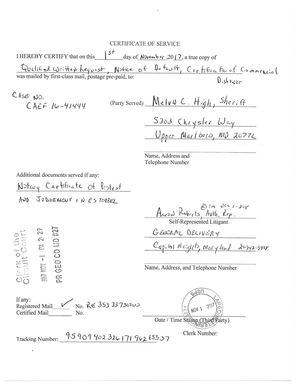 CERTIFICATE OF SERVICE
I HEREBY CERTIFY that on this 1st day of November, 2017, a true copy of
Qualified Written Request, Notice of Default, Certificate of Commercial
Dishonor
was mailed by first-class mail, postage pre-paid, to:
CASE NO.
CAEF 16-41444
(Party Served) Melvin C. High, Sheriff
5303 Chrysler Way
Upper Marlboro, MD 20772
Name, Address and
Telephone Number
Additional documents served if any:
Notary Certificate of Protest
AND JUDGEMENT IN ESTOPPEL
Aaron Roberts, Auth. Rep.
Self-Represented Litigant
GENERAL DELIVERY
Capitol Heights, Maryland
Name, Address, and Telephone Number
Clerk of the
Circuit Court
PR GEO CO MD
If any:
Registered Mail No. RE
Certified Mail No.
Date / Time Stamp (Third Party)
Clerk Number:
Tracking Number: